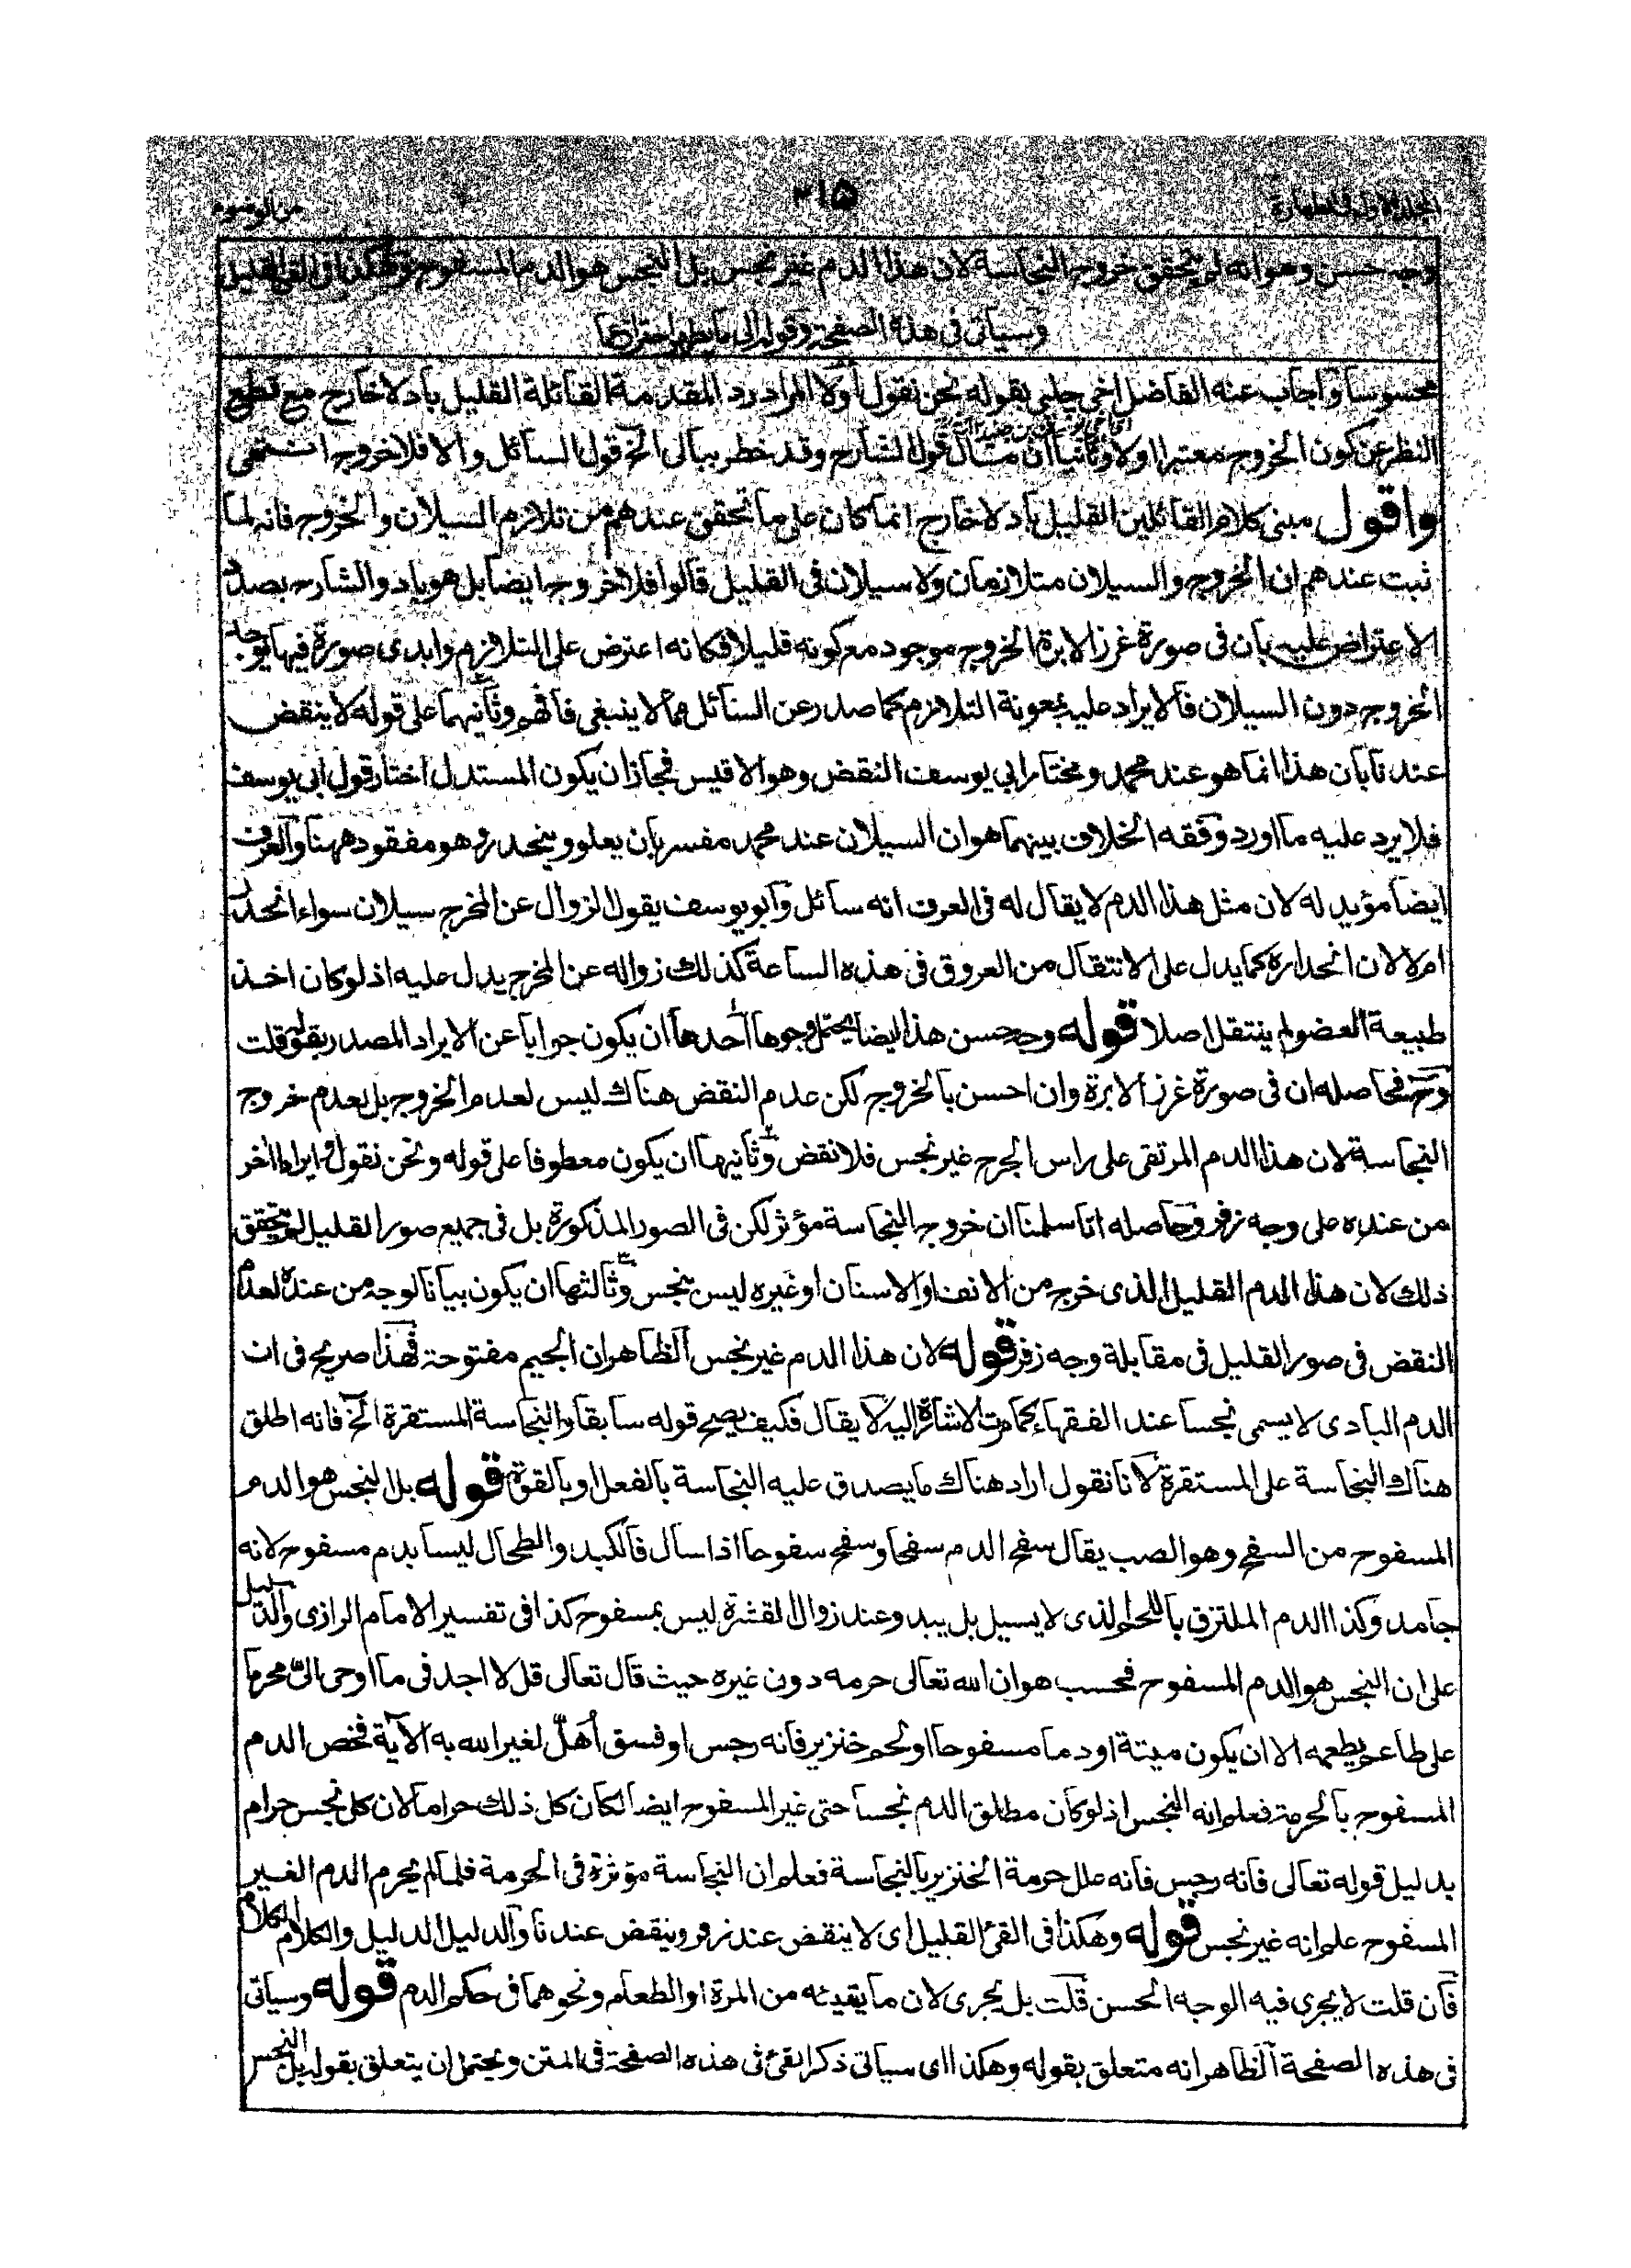 ٢١٥
وجه حسن وهو انه لم يتحقق خروج النجاسة لان هذا الدم غير نجس بل النجس هو الدم المسفوح وهكذا فى القئ القليل
وسياتى فى هذه الصفحة وقوله الى ما يطهر احترازا عما
محسوسا واجاب عنه الفاضل اخى چلپى بقوله نحن نقول اولا المراد رد المقدمة القائلة القليل باد لا خارج مع قطع
النظر عن كون الخروج معتبرا اولا وثانيا ان مثال قول الشارح وقد خطر ببالى الخ قول السائل والا فلا خروج انتهى
واقول مبنى كلام القائلين القليل باد لا خارج انما كان على ما تحقق عندهم من تلازم السيلان والخروج فانه لما
ثبت عندهم ان الخروج والسيلان متلازمان ولا سيلان فى القليل قالوا فلا خروج ايضا بل هو باد والشارح بصدد
الاعتراض عليه بان فى صورة غرز الابرة الخروج موجود مع كونه قليلا فكانه اعترض على التلازم وابدى صورة فيها يوجد
الخروج دون السيلان فالايراد عليه بمعونة التلازم كما صدر عن السائل مما لا ينبغى فافهم وثانيهما على قوله لا ينقض
عندنا بان هذا انما هو عند محمد ومختار ابي يوسف النقض وهو الاقيس فجاز ان يكون المستدل اختار قول ابي يوسف
فلا يرد عليه ما اورد وفقه الخلاف بينهما هو ان السيلان عند محمد مفسر بان يعلو وينحدر وهو مفقود ههنا والعرف
ايضا مؤيد له لان مثل هذا الدم لا يقال له فى العرف انه سائل وابو يوسف يقول الزوال عن المخرج سيلان سواء انحدر
ام لا لان انحداره كما يدل على الانتقال من العروق فى هذه الساعة كذلك زواله عن المخرج يدل عليه اذ لو كان اخذ
طبيعة العضو لم ينتقل اصلا قوله وجه حسن هذا ايضا يحتمل وجوها احدها ان يكون جوابا عن الايراد المصدر بقوله قلت
وح فحاصله ان فى صورة غرز الابرة وان احسن بالخروج لكن عدم النقض هناك ليس لعدم الخروج بل لعدم خروج
النجاسة لان هذا الدم المرتقى على راس الجرح غير نجس فلا نقض وثانيها ان يكون معطوفا على قوله ونحن نقول وايرادا آخر
من عنده على وجه زفر وحاصله انا سلمنا ان خروج النجاسة مؤثر لكن فى الصور المذكورة بل فى جميع صور القليل لم يتحقق
ذلك لان هذا الدم القليل الذى خرج من الانف او الاسنان او غيره ليس بنجس وثالثها ان يكون بيانا لوجه من عنده لعدم
النقض فى صور القليل فى مقابلة وجه زفر قوله لان هذا الدم غير نجس الظاهر ان الجيم مفتوحة فهذا صريح فى ان
الدم البادى لا يسمى نجسا عند الفقهاء كما مرت الاشارة اليه لا يقال فكيف يصح قوله سابقا والنجاسة المستقرة الخ فانه اطلق
هناك النجاسة على المستقرة لانا نقول اراد هناك ما يصدق عليه النجاسة بالفعل او بالقوة قوله بل النجس هو الدم
المسفوح من السفح وهو الصب يقال سفح الدم سفحا وسفح سفوحا اذا سال فالكبد والطحال ليسا بدم مسفوح لانه
جامد وكذا الدم الملتزق باللحم الذى لا يسيل بل يبدو عند زوال القشرة ليس بمسفوح كذا فى تفسير الامام الرازى والدليل
على ان النجس هو الدم المسفوح فحسب هو ان الله تعالى حرمه دون غيره حيث قال تعالى قل لا اجد فى ما اوحى الىّ محرما
على طاعم يطعمه الا ان يكون ميتة او دما مسفوحا او لحم خنزير فانه رجس او فسق اهلّ لغير الله به الآية فخص الدم
المسفوح بالحرمة فعلم انه النجس اذ لو كان مطلق الدم نجسا حتى غير المسفوح ايضا لكان كل ذلك حراما لان كل نجس حرام
بدليل قوله تعالى فانه رجس فانه علل حرمة الخنزير بالنجاسة فعلم ان النجاسة مؤثرة فى الحرمة فلما لم يحرم الدم الغير
المسفوح علم انه غير نجس قوله وهكذا فى القئ القليل اى لا ينقض عند زفر وينقض عندنا والدليل الدليل والكلام الكلام
فان قلت لا يجرى فيه الوجه الحسن قلت بل يجرى لان ما يقيئه من المرة او الطعام ونحوهما فى حكم الدم قوله وسياتى
فى هذه الصفحة الظاهر انه متعلق بقوله وهكذا اى سياتى ذكر القئ فى هذه الصفحة فى المتن ويحتمل ان يتعلق بقوله بل النجس